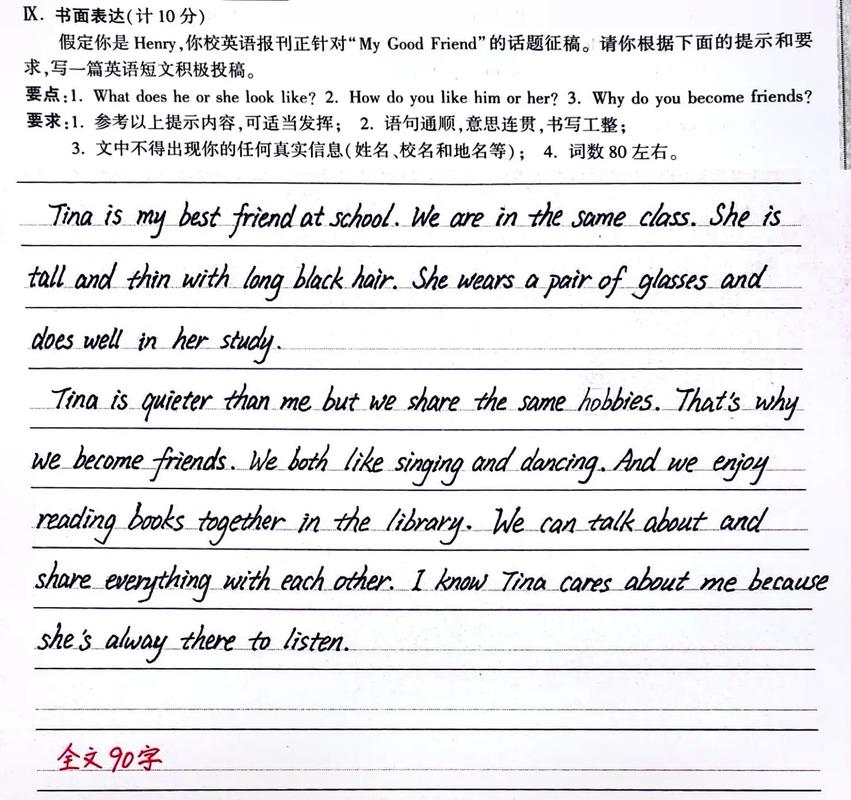 Ⅸ. 书面表达(计10分)
假定你是 Henry,你校英语报刊正针对“My Good Friend”的话题征稿。请你根据下面的提示和要
求,写一篇英语短文积极投稿。
要点:1. What does he or she look like? 2. How do you like him or her? 3. Why do you become friends?
要求:1. 参考以上提示内容,可适当发挥; 2. 语句通顺,意思连贯,书写工整;
3. 文中不得出现你的任何真实信息(姓名、校名和地名等); 4. 词数80左右。
Tina is my best friend at school. We are in the same class. She is
tall and thin with long black hair. She wears a pair of glasses and
does well in her study.
Tina is quieter than me but we share the same hobbies. That's why
we become friends. We both like singing and dancing. And we enjoy
reading books together in the library. We can talk about and
share everything with each other. I know Tina cares about me because
she's alway there to listen.
全文90字